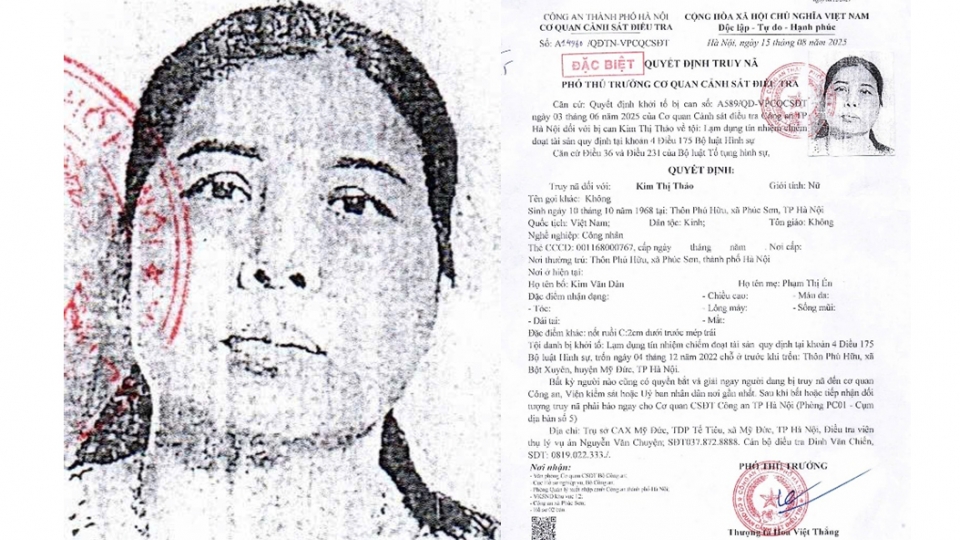 CÔNG AN THÀNH PHỐ HÀ NỘI
CƠ QUAN CẢNH SÁT ĐIỀU TRA
CỘNG HÒA XÃ HỘI CHỦ NGHĨA VIỆT NAM
Độc lập - Tự do - Hạnh phúc
Số: /QĐTN-VPCQCSĐT
Hà Nội, ngày 15 tháng 08 năm 2025
ĐẶC BIỆT
QUYẾT ĐỊNH TRUY NÃ
PHÓ THỦ TRƯỞNG CƠ QUAN CẢNH SÁT ĐIỀU TRA
Căn cứ: Quyết định khởi tố bị can số: A589/QD-VPCQCSĐT
ngày 03 tháng 06 năm 2025 của Cơ quan Cảnh sát điều tra Công an TP
Hà Nội đối với bị can Kim Thị Thảo về tội: Lạm dụng tín nhiệm chiếm
đoạt tài sản quy định tại khoản 4 Điều 175 Bộ luật Hình sự
Căn cứ Điều 36 và Điều 231 của Bộ luật Tố tụng hình sự,
QUYẾT ĐỊNH:
Truy nã đối với: Kim Thị Thảo Giới tính: Nữ
Tên gọi khác: Không
Sinh ngày 10 tháng 10 năm 1968 tại: Thôn Phú Hữu, xã Phúc Sơn, TP Hà Nội
Quốc tịch: Việt Nam; Dân tộc: Kinh; Tôn giáo: Không
Nghề nghiệp: Công nhân
Thẻ CCCD: 001168000767, cấp ngày tháng năm . Nơi cấp:
Nơi thường trú: Thôn Phú Hữu, xã Phúc Sơn, thành phố Hà Nội
Nơi ở hiện tại:
Họ tên bố: Kim Văn Dân Họ tên mẹ: Phạm Thị Én
Đặc điểm nhận dạng: - Chiều cao: - Màu da:
- Tóc: - Lông mày: - Sống mũi:
- Dái tai: - Mắt:
Đặc điểm khác: nốt ruồi C:2cm dưới trước mép trái
Tội danh bị khởi tố: Lạm dụng tín nhiệm chiếm đoạt tài sản quy định tại khoản 4 Điều 175
Bộ luật Hình sự, trốn ngày 04 tháng 12 năm 2022 chỗ ở trước khi trốn: Thôn Phú Hữu, xã
Bột Xuyên, huyện Mỹ Đức, TP Hà Nội.
Bất kỳ người nào cũng có quyền bắt và giải ngay người đang bị truy nã đến cơ quan
Công an, Viện kiểm sát hoặc Uỷ ban nhân dân nơi gần nhất. Sau khi bắt hoặc tiếp nhận đối
tượng truy nã phải báo ngay cho Cơ quan CSĐT Công an TP Hà Nội (Phòng PC01 - Cụm
địa bàn số 5)
Địa chỉ: Trụ sở CAX Mỹ Đức, TDP Tế Tiêu, xã Mỹ Đức, TP Hà Nội, Điều tra viên
thụ lý vụ án Nguyễn Văn Chuyện; SĐT037.872.8888. Cán bộ điều tra Đinh Văn Chiến,
SĐT: 0819.022.333./.
Nơi nhận:
- Văn phòng Cơ quan CSĐT Bộ Công an;
- Cục Hồ sơ nghiệp vụ, Bộ Công an;
- Phòng Quản lý xuất nhập cảnh Công an thành phố Hà Nội;
- VKSND khu vực 12;
- Công an xã Phúc Sơn;
- Hồ sơ 02 bản
PHÓ THỦ TRƯỞNG
Thượng tá Hòa Việt Thắng